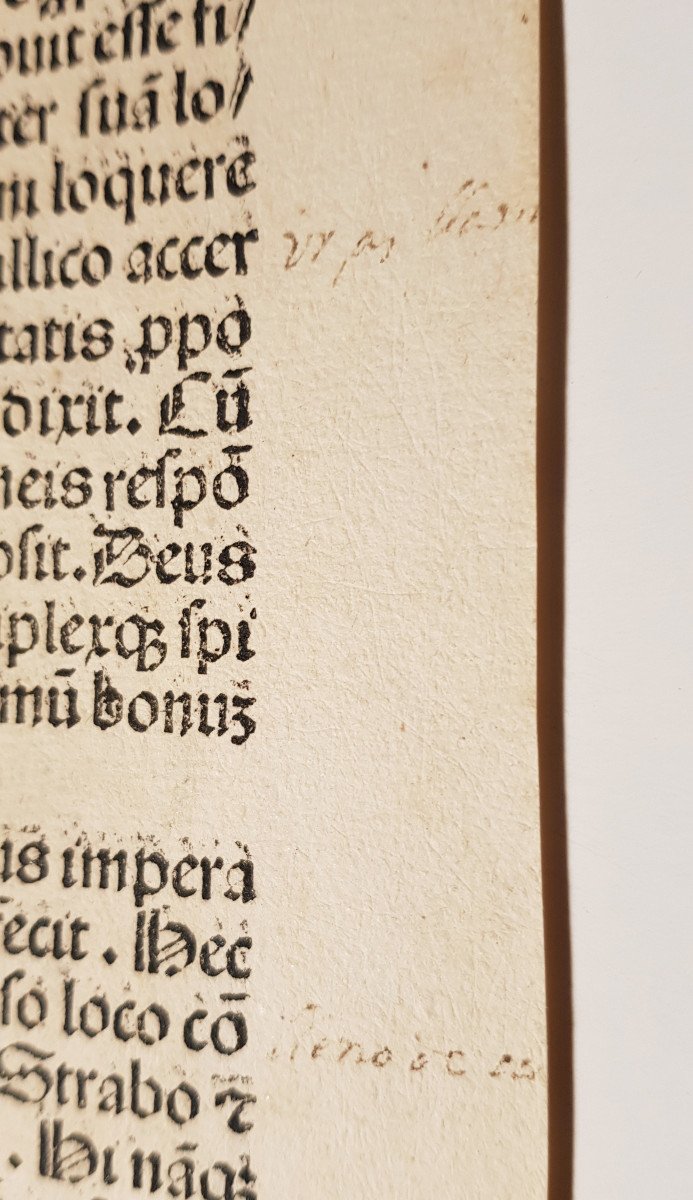 ouit esse fi/
rer suā lo/
m loquere
llico accer
tatis ꝓpo
dixit. Cū
neis respō
osit. Deus
plexqꝫ spi
mū bonuꝫ
us impera
fecit. Hec
so loco cō
Strabo ⁊
. Hi nāqꝫ